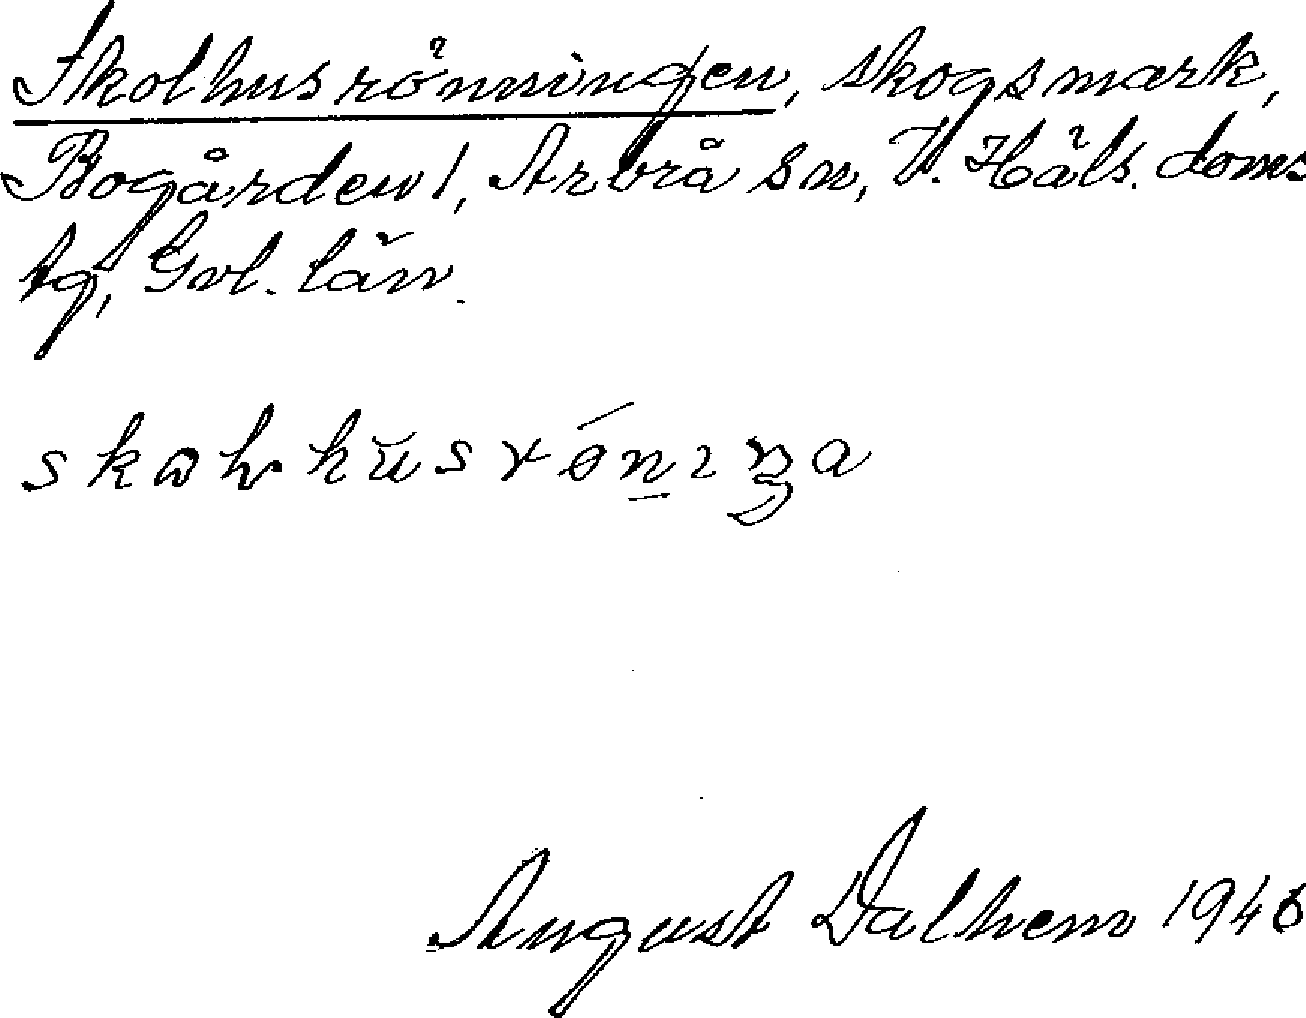 Skolhusrönningen, skogsmark,
Bogården 1, Arbrå sn, V. Häls. doms
tg, Gvl. län.
August Dalhem 1946